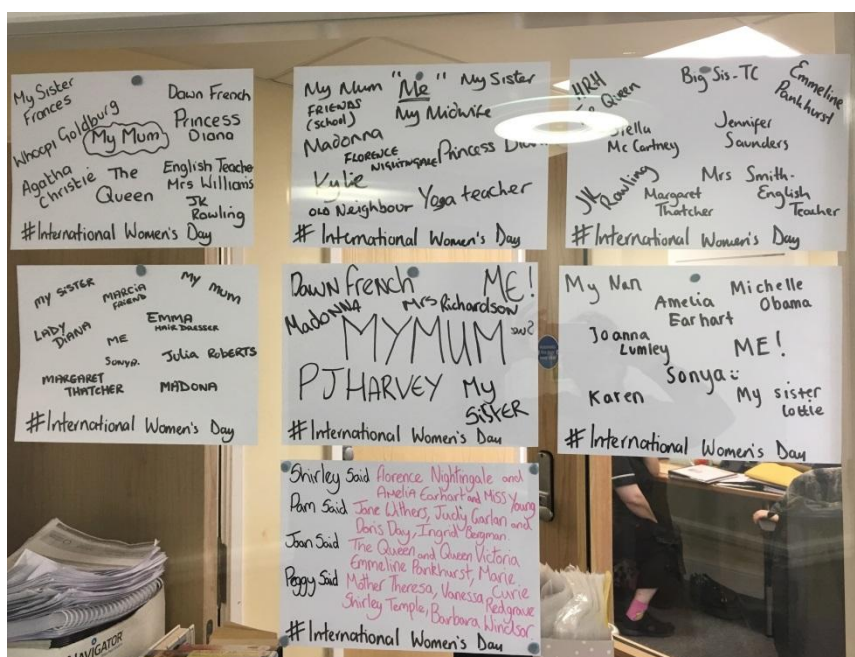 My Sister
Frances
Dawn French
Whoopi Goldburg
Princess
Diana
My Mum
Agatha
Christie
The
Queen
English Teacher
Mrs Williams
JK
Rowling
#International Women's Day
My Mum
"Me"
My Sister
FRIENDS
(school)
My Midwife
Madonna
FLORENCE
NIGHTINGALE
Princess
Kylie
OLD Neighbour
Yoga teacher
# International Women's Day
HRH
Queen
Big Sis-TC
Emmeline
Pankhurst
McCartney
Jennifer
Saunders
JK
Rowling
Margaret
Thatcher
Mrs Smith-
English
Teacher
#International Women's Day
MY SISTER
MARCIA
FRIEND
MY MUM
LADY
DIANA
ME
SONYA.
EMMA
HAIR DRESSER
Julia ROBERTS
MARGARET
THATCHER
MADONA
#International Women's Day
DAWN FRENCH
ME!
MADONNA
Mrs Richardson
MY MUM
PJ HARVEY
My
SISTER
#International Women's Day
My Nan
Amelia
Earhart
Michelle
Obama
Joanna
Lumley
ME!
Sonya
Karen
My sister
Lottie
# International Women's Day
Shirley Said Florence Nightingale and
Amelia Earhart and Miss Young
Pam Said Jane Withers, Judy Garlan and
Doris Day, Ingrid Bergman
Joan Said The Queen and Queen Victoria
Emmeline Pankhurst, Marie Curie
Peggy Said Mother Theresa, Vanessa Redgrave
Shirley Temple, Barbara Windsor.
#International Women's Day
NAVIGATOR